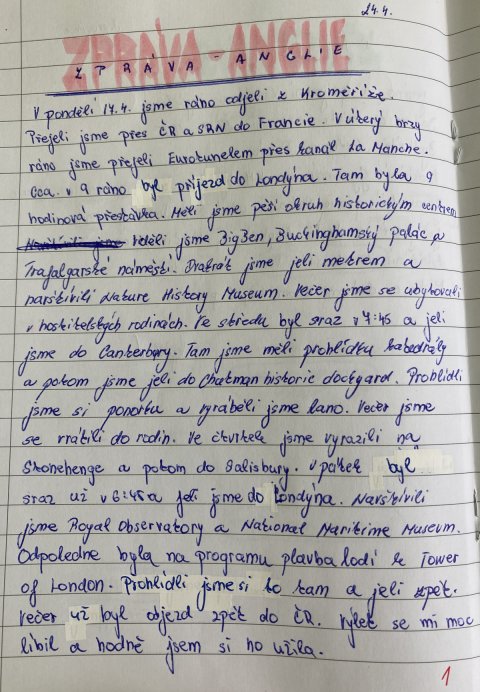 24.4.
ZPRÁVA - ANGLIE
ZPRÁVA - ANGLIE
V pondělí 17.4. jsme ráno odjeli z Kroměříže.
Přejeli jsme přes ČR a SRN do Francie. V úterý brzy
ráno jsme přejeli Eurotunelem přes kanál La Manche.
Cca. v 9 ráno byl příjezd do Londýna. Tam byla 9
hodinová přestávka. Měli jsme pěší okruh historickým centrem
Viděli jsme BigBen, Buckinghamský palác a
Trafalgarské náměstí. Dvakrát jsme jeli metrem a
navštívili Nature History Museum. Večer jsme se ubytovali
v hostitelských rodinách. Ve středu byl sraz v 7:45 a jeli
jsme do Canterbury. Tam jsme měli prohlídku katedrály
a potom jsme jeli do Chatman historic dockyard. Prohlídli
jsme si ponorku a vyráběli jsme lano. Večer jsme
se vrátili do rodin. Ve čtvrtek jsme vyrazili na
Stonehenge a potom do Salisbury. V pátek byl
sraz už v 6:45 a jeli jsme do Londýna. Navštívili
jsme Royal Observatory a National Maritrime Museum.
Odpoledne byla na programu plavba lodí k Tower
of London. Prohlídli jsme si to tam a jeli zpět.
Večer už byl odjezd zpět do ČR. Výlet se mi moc
líbil a hodně jsem si ho užila.
1